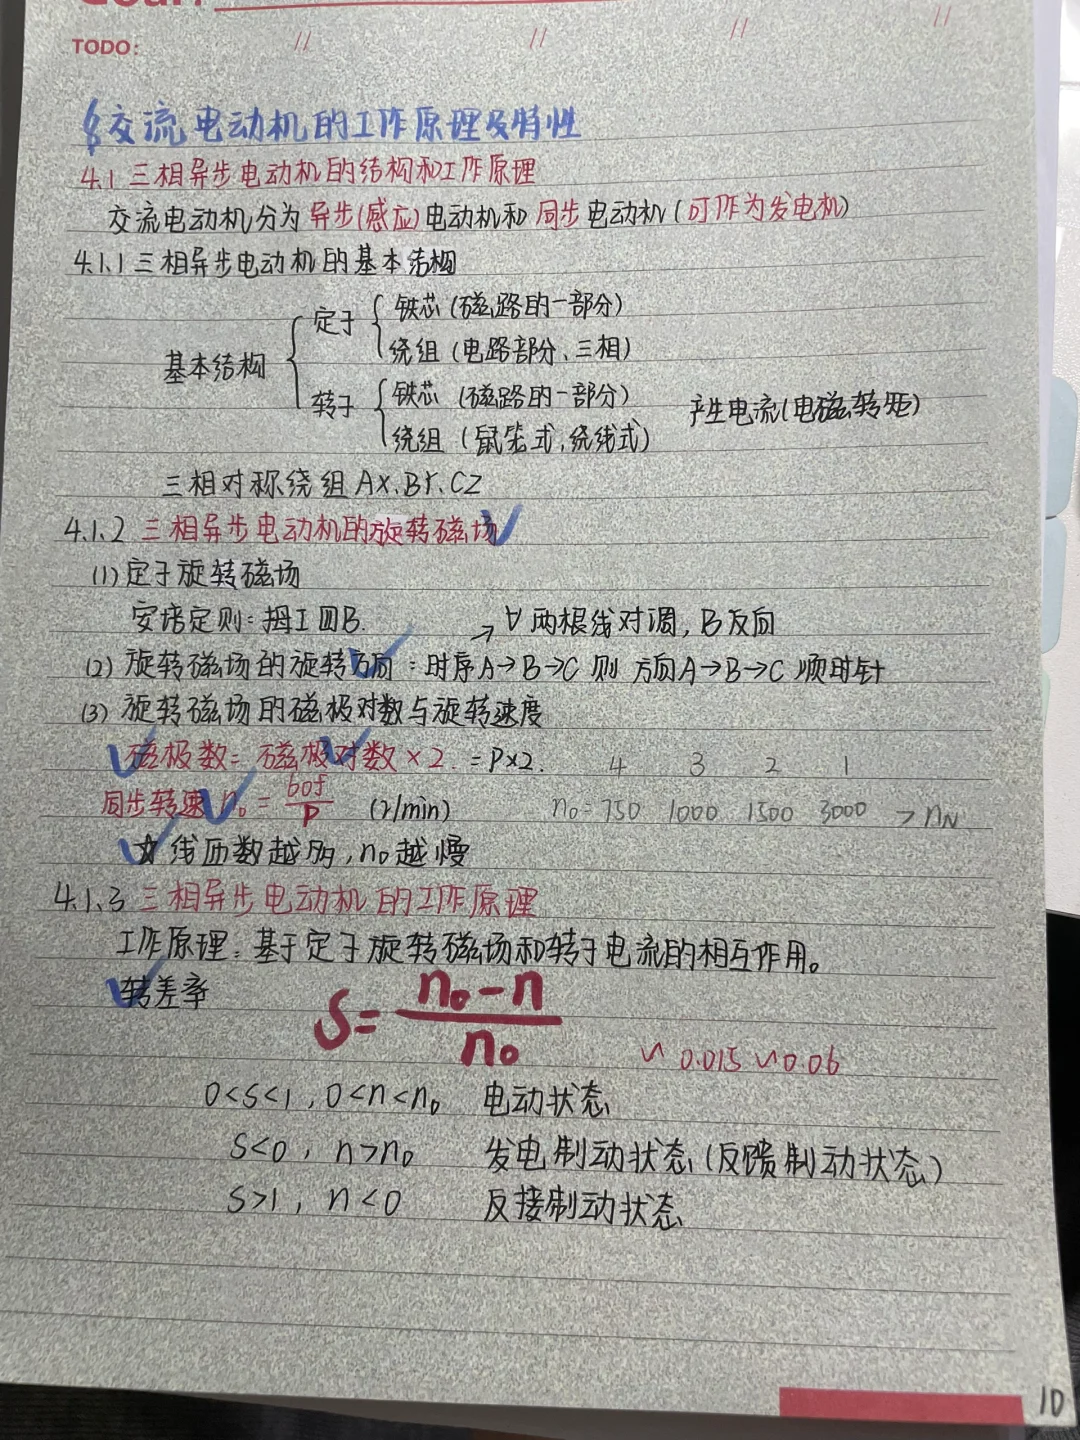 TODO:
交流电动机的工作原理及特性
4.1 三相异步电动机的结构和工作原理
交流电动机分为异步(感应)电动机和同步电动机(可作为发电机)
4.1.1 三相异步电动机的基本结构
基本结构
定子
铁芯 (磁路的一部分)
绕组 (电路部分、三相)
转子
铁芯 (磁路的一部分)
绕组 (鼠笼式,绕线式)
产生电流(电磁转矩)
三相对称绕组 AX.BY.CZ
4.1.2 三相异步电动机的旋转磁场
(1) 定子旋转磁场
安培定则:拇I四B.
→ ∀ 两根线对调, B反向
(2) 旋转磁场的旋转方向:时序A→B→C 则 方向A→B→C 顺时针
(3) 旋转磁场的磁极对数与旋转速度
磁极数= 磁极对数×2. =P×2. 4 3 2 1
同步转速 n₀ = 60f/P (r/min) n₀=750 1000 1500 3000 > nN
☆ 线圈数越多,n₀越慢
4.1.3 三相异步电动机的工作原理
工作原理:基于定子旋转磁场和转子电流的相互作用。
转差率
S= n₀-n/n₀
∽ 0.015 ∽ 0.06
0<S<1, 0<n<n₀ 电动状态
S<0, n>n₀ 发电制动状态(反馈制动状态)
S>1, n<0 反接制动状态
10